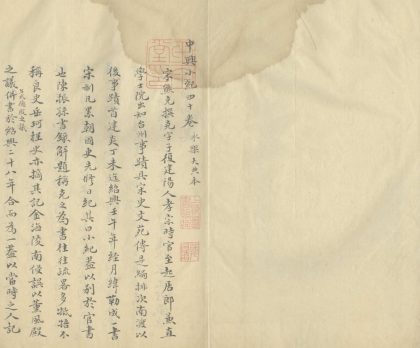 中興小紀四十卷 永樂大典本
宋熊克撰克字子復建陽人孝宗時官至起居郎兼直
學士院出知台州事蹟具宋史文苑傳是編排次南渡以
後事蹟首建炎丁未迄紹興壬午年經月緯勒成一書
宋制凡累朝國史先修日紀其曰小紀蓋以別於官書
也陳振孫書錄解題稱克之為書往往疏畧多牴牾不
稱良史岳珂桯史亦摘其記金海陵南侵誤以薰風殿
之議與武德殿之議併書於紹興二十八年合而為一蓋以當時之人記